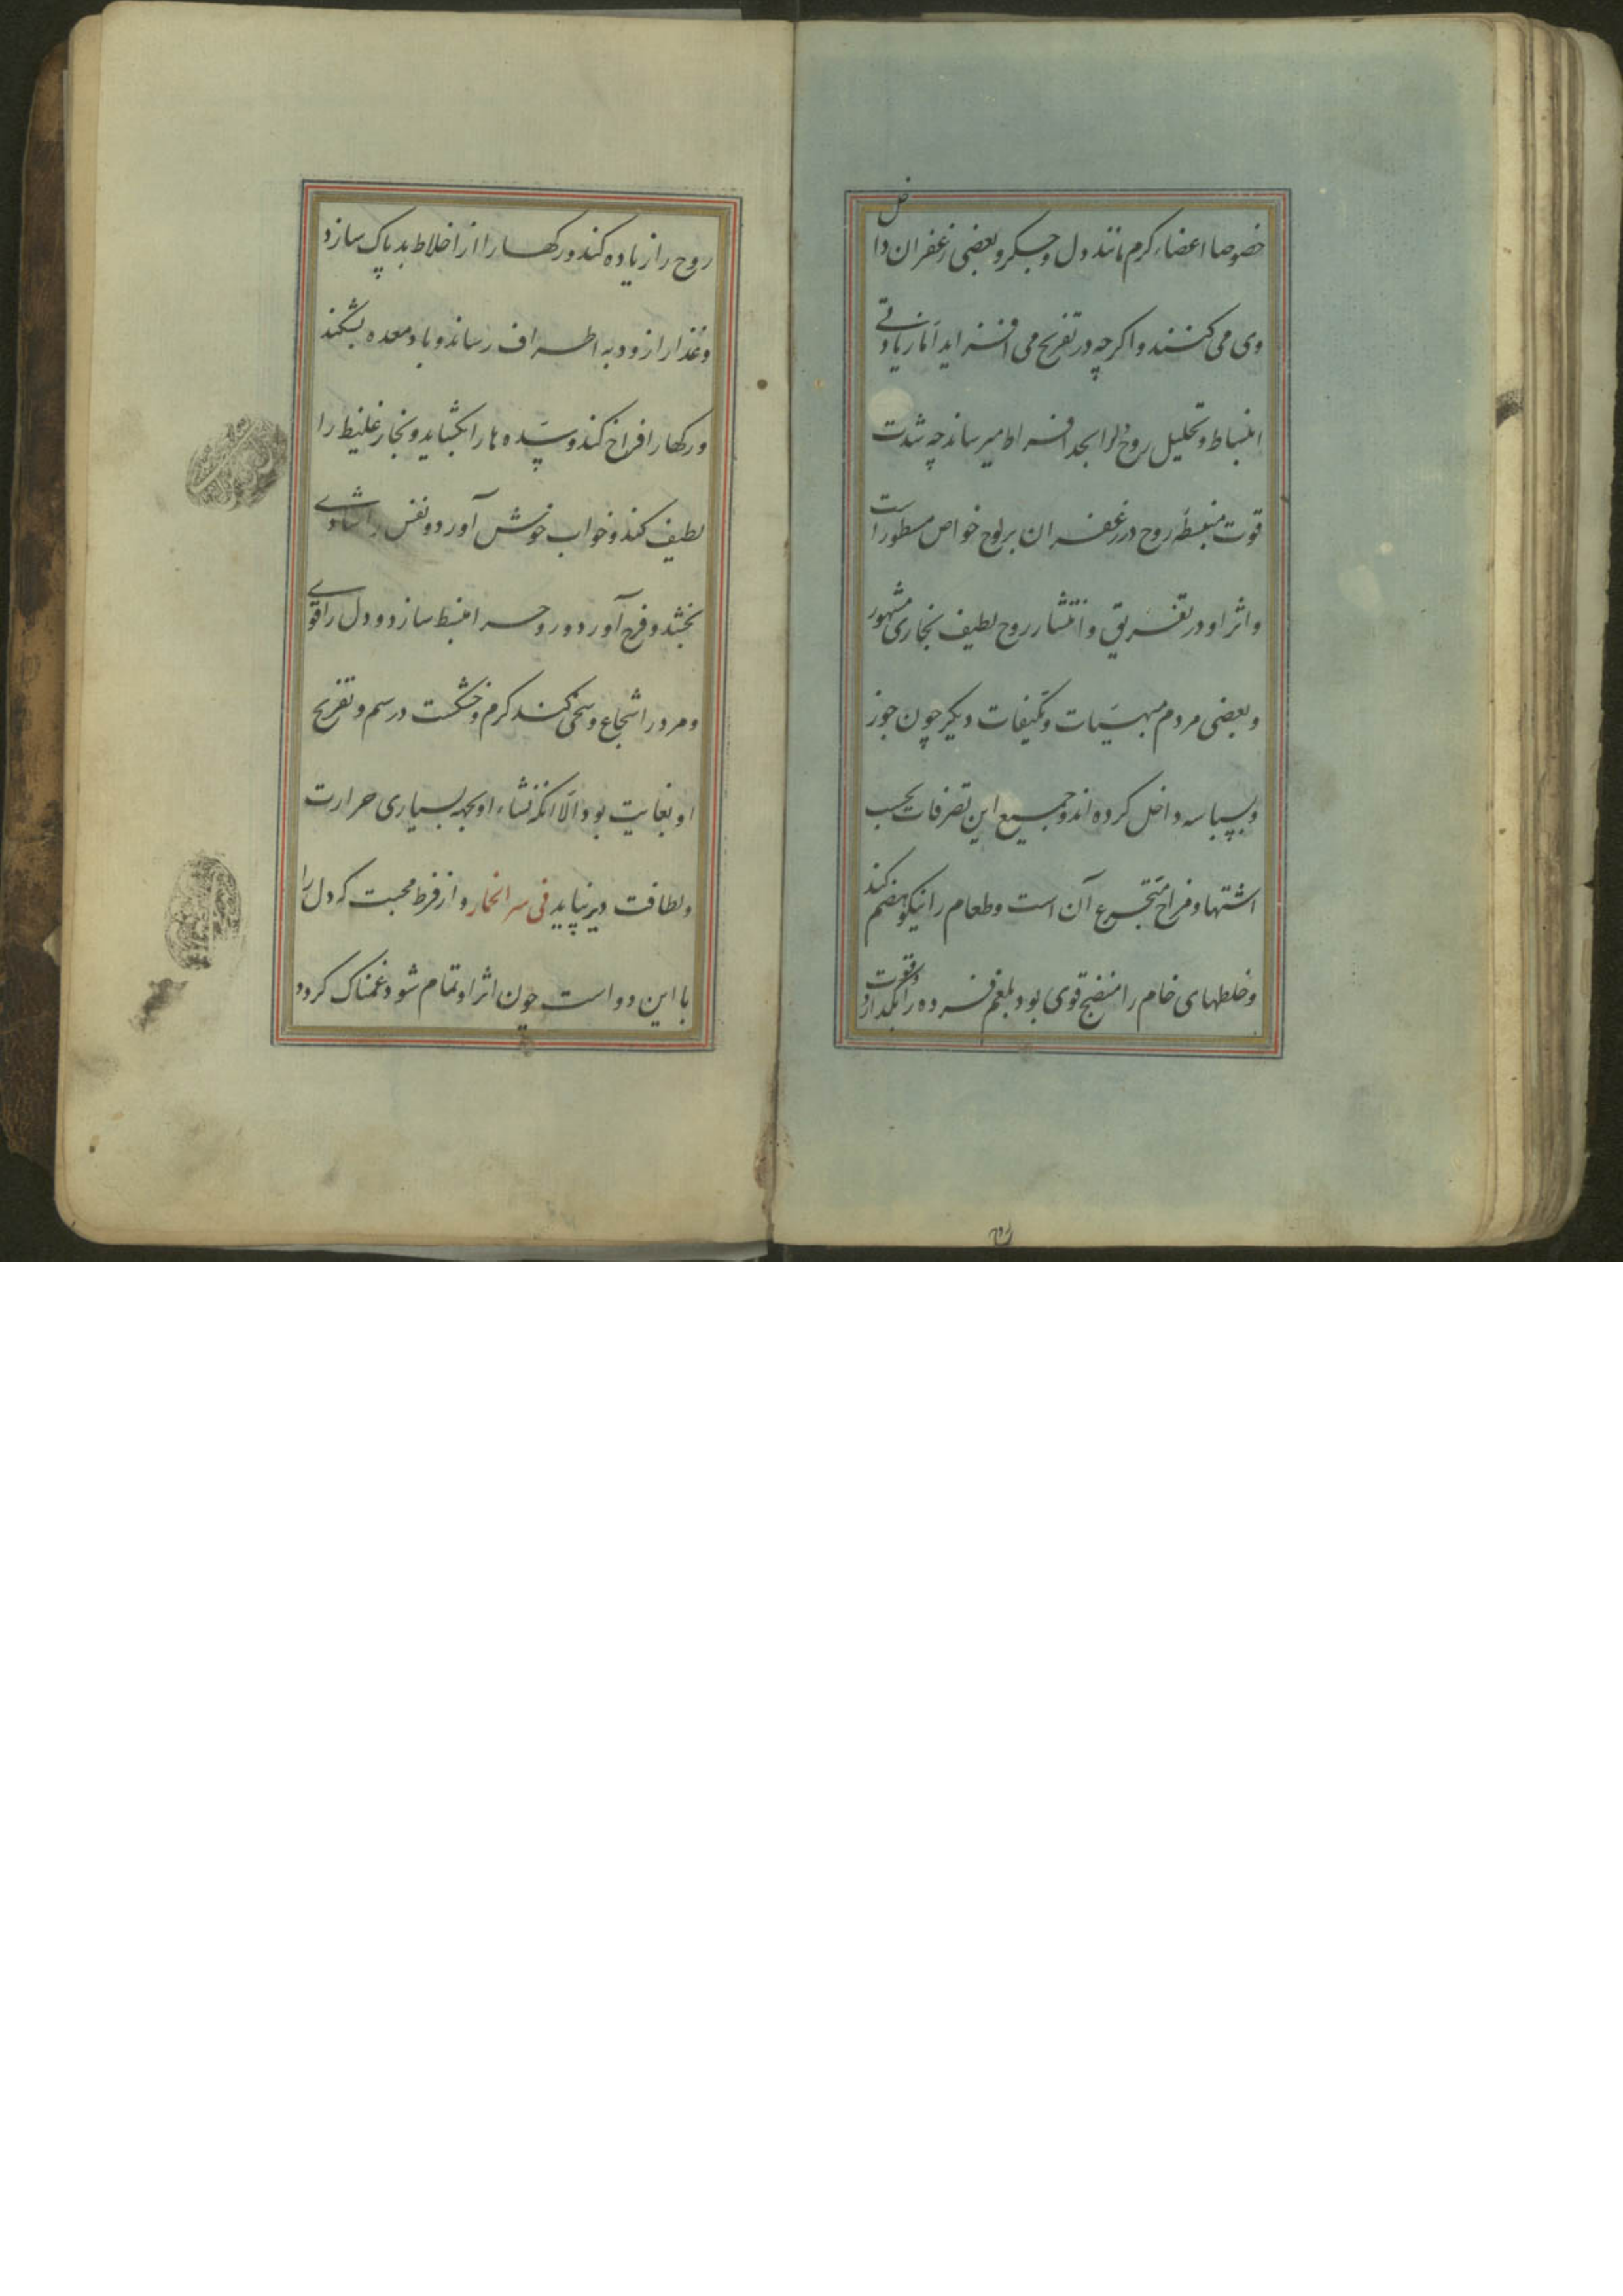 خصوصا اعضاء کرم مانند دل و جکر و بعضی زعفران داخل
وی می کنند و اکرچه در تفریح می افزاید اما زیادتی
انبساط و تحلیل روح را بحد افراط میرساند چه شدت
قوت منبسطه روح در زعفران بر لوح خواص مسطور است
و اثر او در تفریق و انتشار روح لطیف بخاری مشهور
و بعضی مردم مبهیات و مکیفات دیکر چون جوز
و بسباسه داخل کرده اند و جمیع این تصرفات بحسب
اشتها و مزاج متجرع آن است و طعام را نیکو هضم کند
و خلطهای خام را منضج قوی بود بلغم فسرده را بکدازد و قوت
روح را زیاده کند و رکها را از اخلاط بد پاک سازد
و غذا را زود به اطراف رساند و باد معده بشکند
و رکها را فراخ کند و سده ها را بکشاید و بخار غلیظ را
لطیف کند و خواب خوش آورد و نفس را شادی
بخشد و فرح آورد و روح را منبسط سازد و دل را قوی
و مرد را شجاع و سخی کند کرم و خشکست در سم و تفریح
او بغایت بود الا انکه نشاء او بجهه بسیاری حرارت
و لطافت دیر نپاید فی سر الخمار و از فرط محبت که دل را
با این دو است چون اثر او تمام شود غمناک کردد
روح